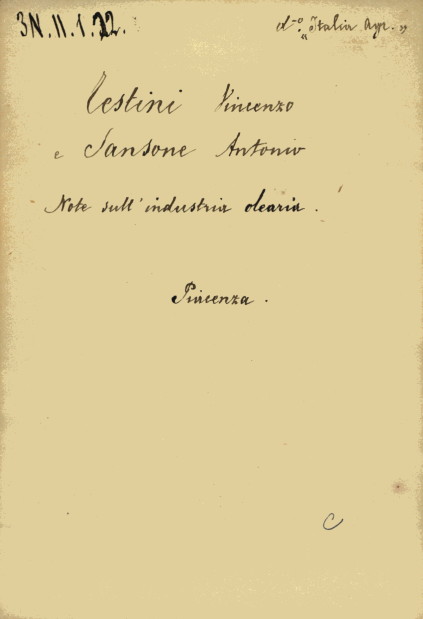 3N.II.1.32.
d-o "Italia Agr."
Testini Vincenzo
e Sansone Antonio
Note sull'industria olearia.
Piacenza.
C